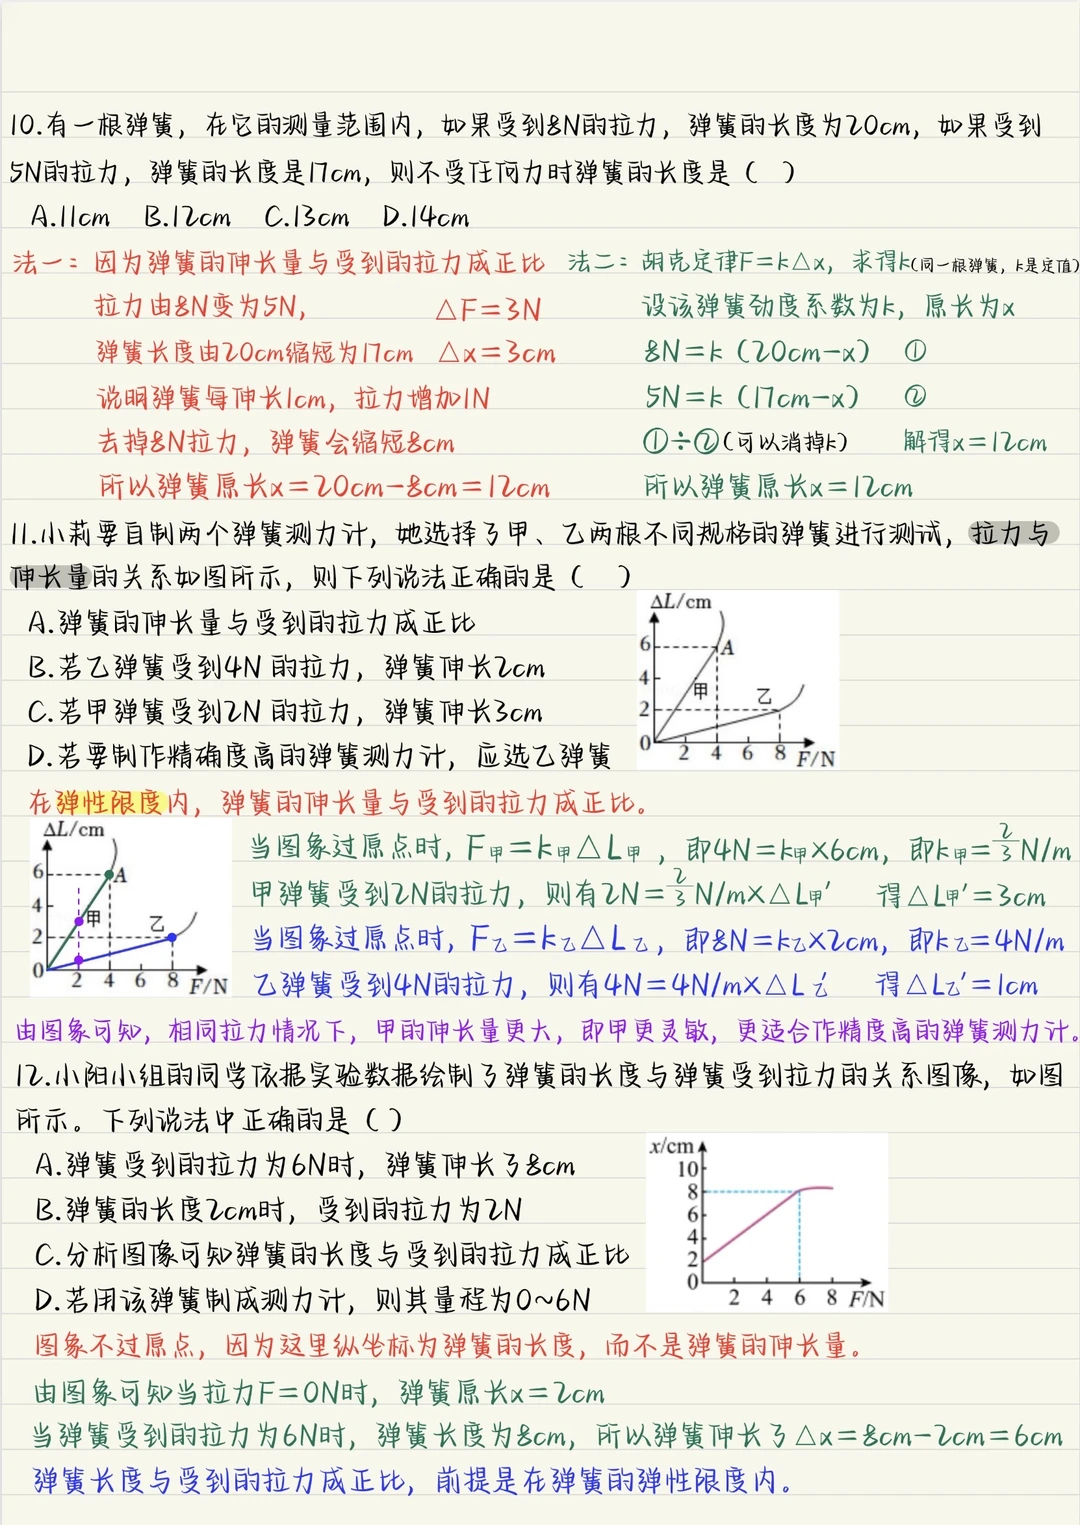 10.有一根弹簧，在它的测量范围内，如果受到8N的拉力，弹簧的长度为20cm，如果受到
5N的拉力，弹簧的长度是17cm，则不受任何力时弹簧的长度是（ ）
A.11cm B.12cm C.13cm D.14cm
法一：因为弹簧的伸长量与受到的拉力成正比
拉力由8N变为5N， △F=3N
弹簧长度由20cm缩短为17cm △x=3cm
说明弹簧每伸长1cm，拉力增加1N
去掉8N拉力，弹簧会缩短8cm
所以弹簧原长x=20cm-8cm=12cm
法二：胡克定律F=k△x，求得k(同一根弹簧，k是定值)
设该弹簧劲度系数为k，原长为x
8N=k（20cm-x） ①
5N=k（17cm-x） ②
①÷②(可以消掉k) 解得x=12cm
所以弹簧原长x=12cm
11.小莉要自制两个弹簧测力计，她选择了甲、乙两根不同规格的弹簧进行测试，拉力与
伸长量的关系如图所示，则下列说法正确的是（ ）
A.弹簧的伸长量与受到的拉力成正比
B.若乙弹簧受到4N 的拉力，弹簧伸长2cm
C.若甲弹簧受到2N 的拉力，弹簧伸长3cm
D.若要制作精确度高的弹簧测力计，应选乙弹簧
ΔL/cm
6
A
4
甲
乙
2
0
2 4 6 8 F/N
在弹性限度内，弹簧的伸长量与受到的拉力成正比。
ΔL/cm
6
A
4
甲
乙
2
0
2 4 6 8 F/N
当图象过原点时，F甲=k甲△L甲，即4N=k甲×6cm，即k甲=2/3N/m
甲弹簧受到2N的拉力，则有2N=2/3N/m×△L甲′ 得△L甲′=3cm
当图象过原点时，F乙=k乙△L乙，即8N=k乙×2cm，即k乙=4N/m
乙弹簧受到4N的拉力，则有4N=4N/m×△L乙′ 得△L乙′=1cm
由图象可知，相同拉力情况下，甲的伸长量更大，即甲更灵敏，更适合作精度高的弹簧测力计。
12.小阳小组的同学依据实验数据绘制了弹簧的长度与弹簧受到拉力的关系图像，如图
所示。下列说法中正确的是（）
A.弹簧受到的拉力为6N时，弹簧伸长了8cm
B.弹簧的长度2cm时，受到的拉力为2N
C.分析图像可知弹簧的长度与受到的拉力成正比
D.若用该弹簧制成测力计，则其量程为0~6N
x/cm
10
8
6
4
2
0
2 4 6 8 F/N
图象不过原点，因为这里纵坐标为弹簧的长度，而不是弹簧的伸长量。
由图象可知当拉力F=0N时，弹簧原长x=2cm
当弹簧受到的拉力为6N时，弹簧长度为8cm，所以弹簧伸长了△x=8cm-2cm=6cm
弹簧长度与受到的拉力成正比，前提是在弹簧的弹性限度内。